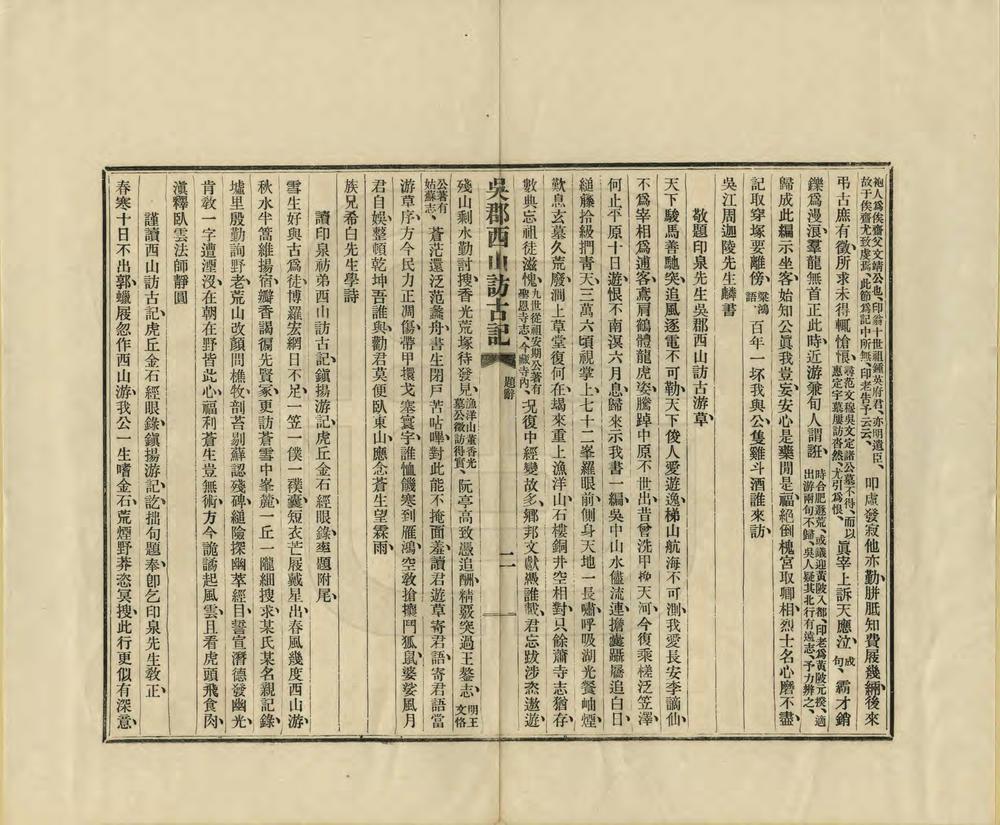 袍人爲俟齋父文靖公也、印翁十世祖鍾英府君、亦明遺臣、
故于俟齋尤致虔焉、此節爲記中所無、印老告予云云、
叩慮發寂他亦勤胼胝知費屐幾緉後來
弔古庶有徵、所求未得輒愴恨、
尋范文穆吳文定諸公墓不得、而以
惠定宇墓屢訪杳然、尤引爲恨、
眞宰上訴天應泣、
成
句、
霸才銷
鑠爲漫浪、羣龍無首正此時近游兼旬人謂誑、
時合肥遯荒、或議迎黃陂入都、印老爲黃陂元揆、適
出游兩旬不歸、吳人疑其北行有遠志、予力辨之、
歸成此編示坐客始知公眞我豈妄安心是藥閒是福絕倒槐宮取卿相烈士名心磨不盡、
記取穿塚要離傍、
梁鴻
語、
百年一坏我與公隻雞斗酒誰來訪、
吳江周迦陵先生麟書
敬題印泉先生吳郡西山訪古游草、
天下駿馬善馳突追風逐電不可勒天下俊人愛遊逸梯山航海不可測我愛長安李謫仙、
不爲宰相爲逋客鳶肩鶴體龍虎姿騰踔中原不世出昔曾洗甲挽天河今復乘槎泛笠澤、
何止平原十日遊恨不南溟六月息歸來示我書一編吳中山水儘流連擔囊躡屩追白日、
縋藤拾級捫青天三萬六頃視掌上七十二峯羅眼前側身天地一長嘯呼吸湖光餐岫煙、
歎息玄墓久荒廢澗上草堂復何在朅來重上漁洋山石樓銅井空相對只餘蕭寺志猶存、
數典忘祖徒滋愧、
九世從祖安期公著有
聖恩寺志、今藏寺內、
況復中經變故多鄉邦文獻憑誰載君忘跋涉恣遨遊
吳郡西山訪古記
題辭
二
殘山剩水勤討搜香光荒塚待發見、
漁洋山董香光
墓公徵訪得實、
阮亭高致憑追酬精覈突過王鏊志、
明王
文恪
公著有
姑蘇志、
蒼茫還泛范蠡舟書生閉戶苦咕嗶對此能不掩面羞讀君遊草寄君語寄君語當
游草序方今民力正凋傷帶甲環戈塞寰宇誰恤饑寒到雁鴻空敎搶攘鬥狐鼠婆娑風月
君自娛整頓乾坤吾誰與勸君莫便臥東山應念蒼生望霖雨、
族兄希白先生學詩
讀印泉礽弟西山訪古記鎭揚游記虎丘金石經眼錄率題附尾、
雪生好與古爲徒博羅宏網日不足一笠一僕一襆囊短衣芒屐戴星出春風幾度西山游、
秋水半篙維揚宿瓣香謁徧先賢冢更訪蒼雪中峯麓一丘一隴細搜求某氏某名親記錄、
墟里殷勤詢野老荒山改顏問樵牧剖苔剔蘚認殘碑縋險探幽莘經目誓宣潛德發幽光、
肯敎一字遭湮沒在朝在野皆此心福利蒼生豈無術方今詭譎起風雲且看虎頭飛食肉、
滇釋臥雲法師靜圓
謹讀西山訪古記虎丘金石經眼錄鎭揚游記訖拙句題奉卽乞印泉先生敎正、
春寒十日不出郭蠟屐忽作西山游我公一生嗜金石荒煙野莽恣冥搜此行更似有深意、